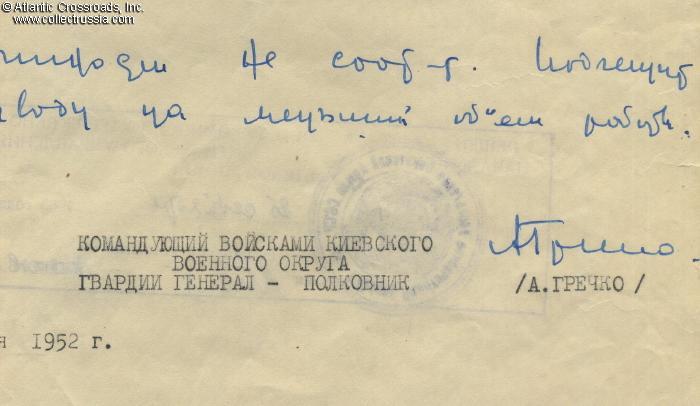 © Atlantic Crossroads, Inc.
www.collectrussia.com
не соот-т. Подлежит
на меньший объем работы.
КОМАНДУЮЩИЙ ВОЙСКАМИ КИЕВСКОГО
ВОЕННОГО ОКРУГА
ГВАРДИИ ГЕНЕРАЛ - ПОЛКОВНИК
/А.ГРЕЧКО/
я 1952 г.